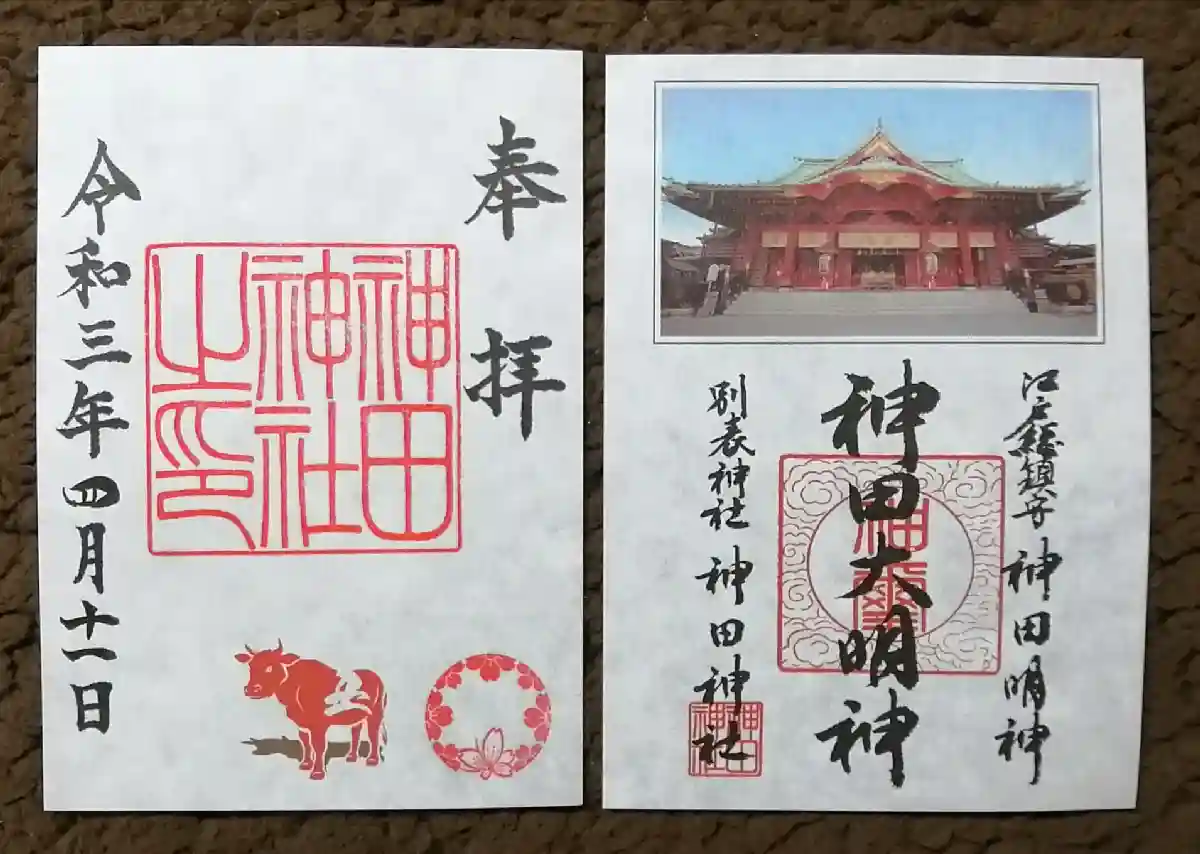 奉拝
神田
神社
之印
令和三年四月十一日
江戸総鎮守 神田明神
神田大明神
神璽
別表神社 神田神社
神田
神社